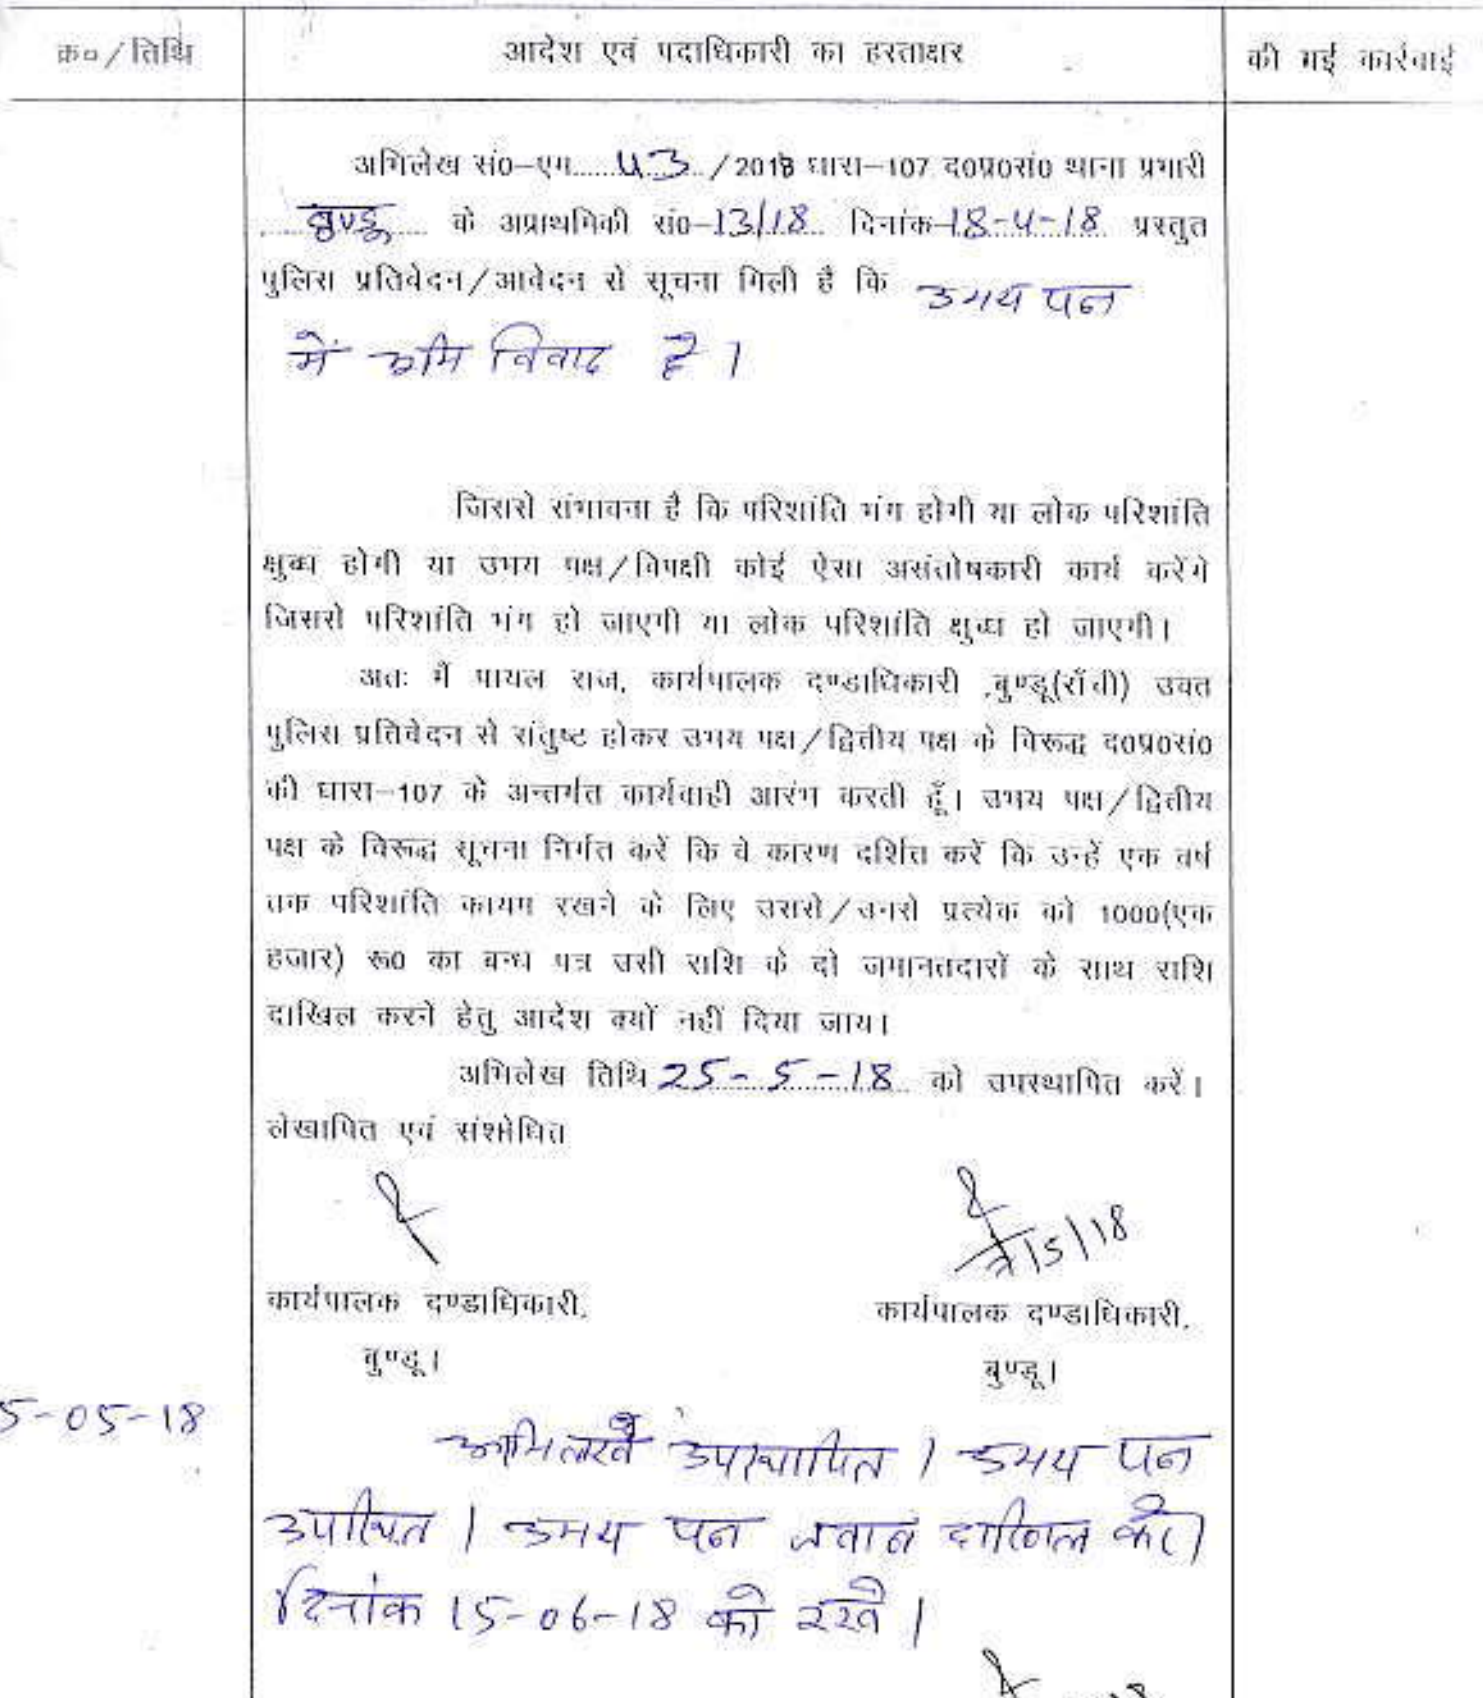 क्र० / तिथि
आदेश एवं पदाधिकारी का हस्ताक्षर
की गई कार्रवाई
अभिलेख सं०-एम......43../2018 धारा-107 द०प्र०सं० थाना प्रभारी
बुण्डू के अप्राथमिकी सं०-13/18 दिनांक-18-4-18 प्रस्तुत
पुलिस प्रतिवेदन/आवेदन से सूचना मिली है कि उभय पक्ष
में भूमि विवाद है।
जिससे संभावना है कि परिशांति भंग होगी या लोक परिशांति
क्षुब्ध होगी या उभय पक्ष/विपक्षी कोई ऐसा असंतोषकारी कार्य करेंगे
जिससे परिशांति भंग हो जाएगी या लोक परिशांति क्षुब्ध हो जाएगी।
अतः मैं पायल राज, कार्यपालक दण्डाधिकारी ,बुण्डू(राँची) उक्त
पुलिस प्रतिवेदन से संतुष्ट होकर उभय पक्ष/द्वितीय पक्ष के विरूद्ध द०प्र०सं०
की धारा-107 के अन्तर्गत कार्यवाही आरंभ करती हूँ। उभय पक्ष/द्वितीय
पक्ष के विरूद्ध सूचना निर्गत करें कि वे कारण दर्शित करें कि उन्हें एक वर्ष
तक परिशांति कायम रखने के लिए उससे/उनसे प्रत्येक को 1000(एक
हजार) रू० का बन्ध पत्र उसी राशि के दो जमानतदारों के साथ राशि
दाखिल करने हेतु आदेश क्यों नहीं दिया जाय।
अभिलेख तिथि 25-5-18 को उपस्थापित करें।
लेखापित एवं संशोधित
/5/18
कार्यपालक दण्डाधिकारी,
कार्यपालक दण्डाधिकारी,
बुण्डू।
बुण्डू।
5-05-18
अभिलेख उपस्थापित। उभय पक्ष
उपस्थित। उभय पक्ष जवाब दाखिल करें।
दिनांक 15-06-18 को रखें।